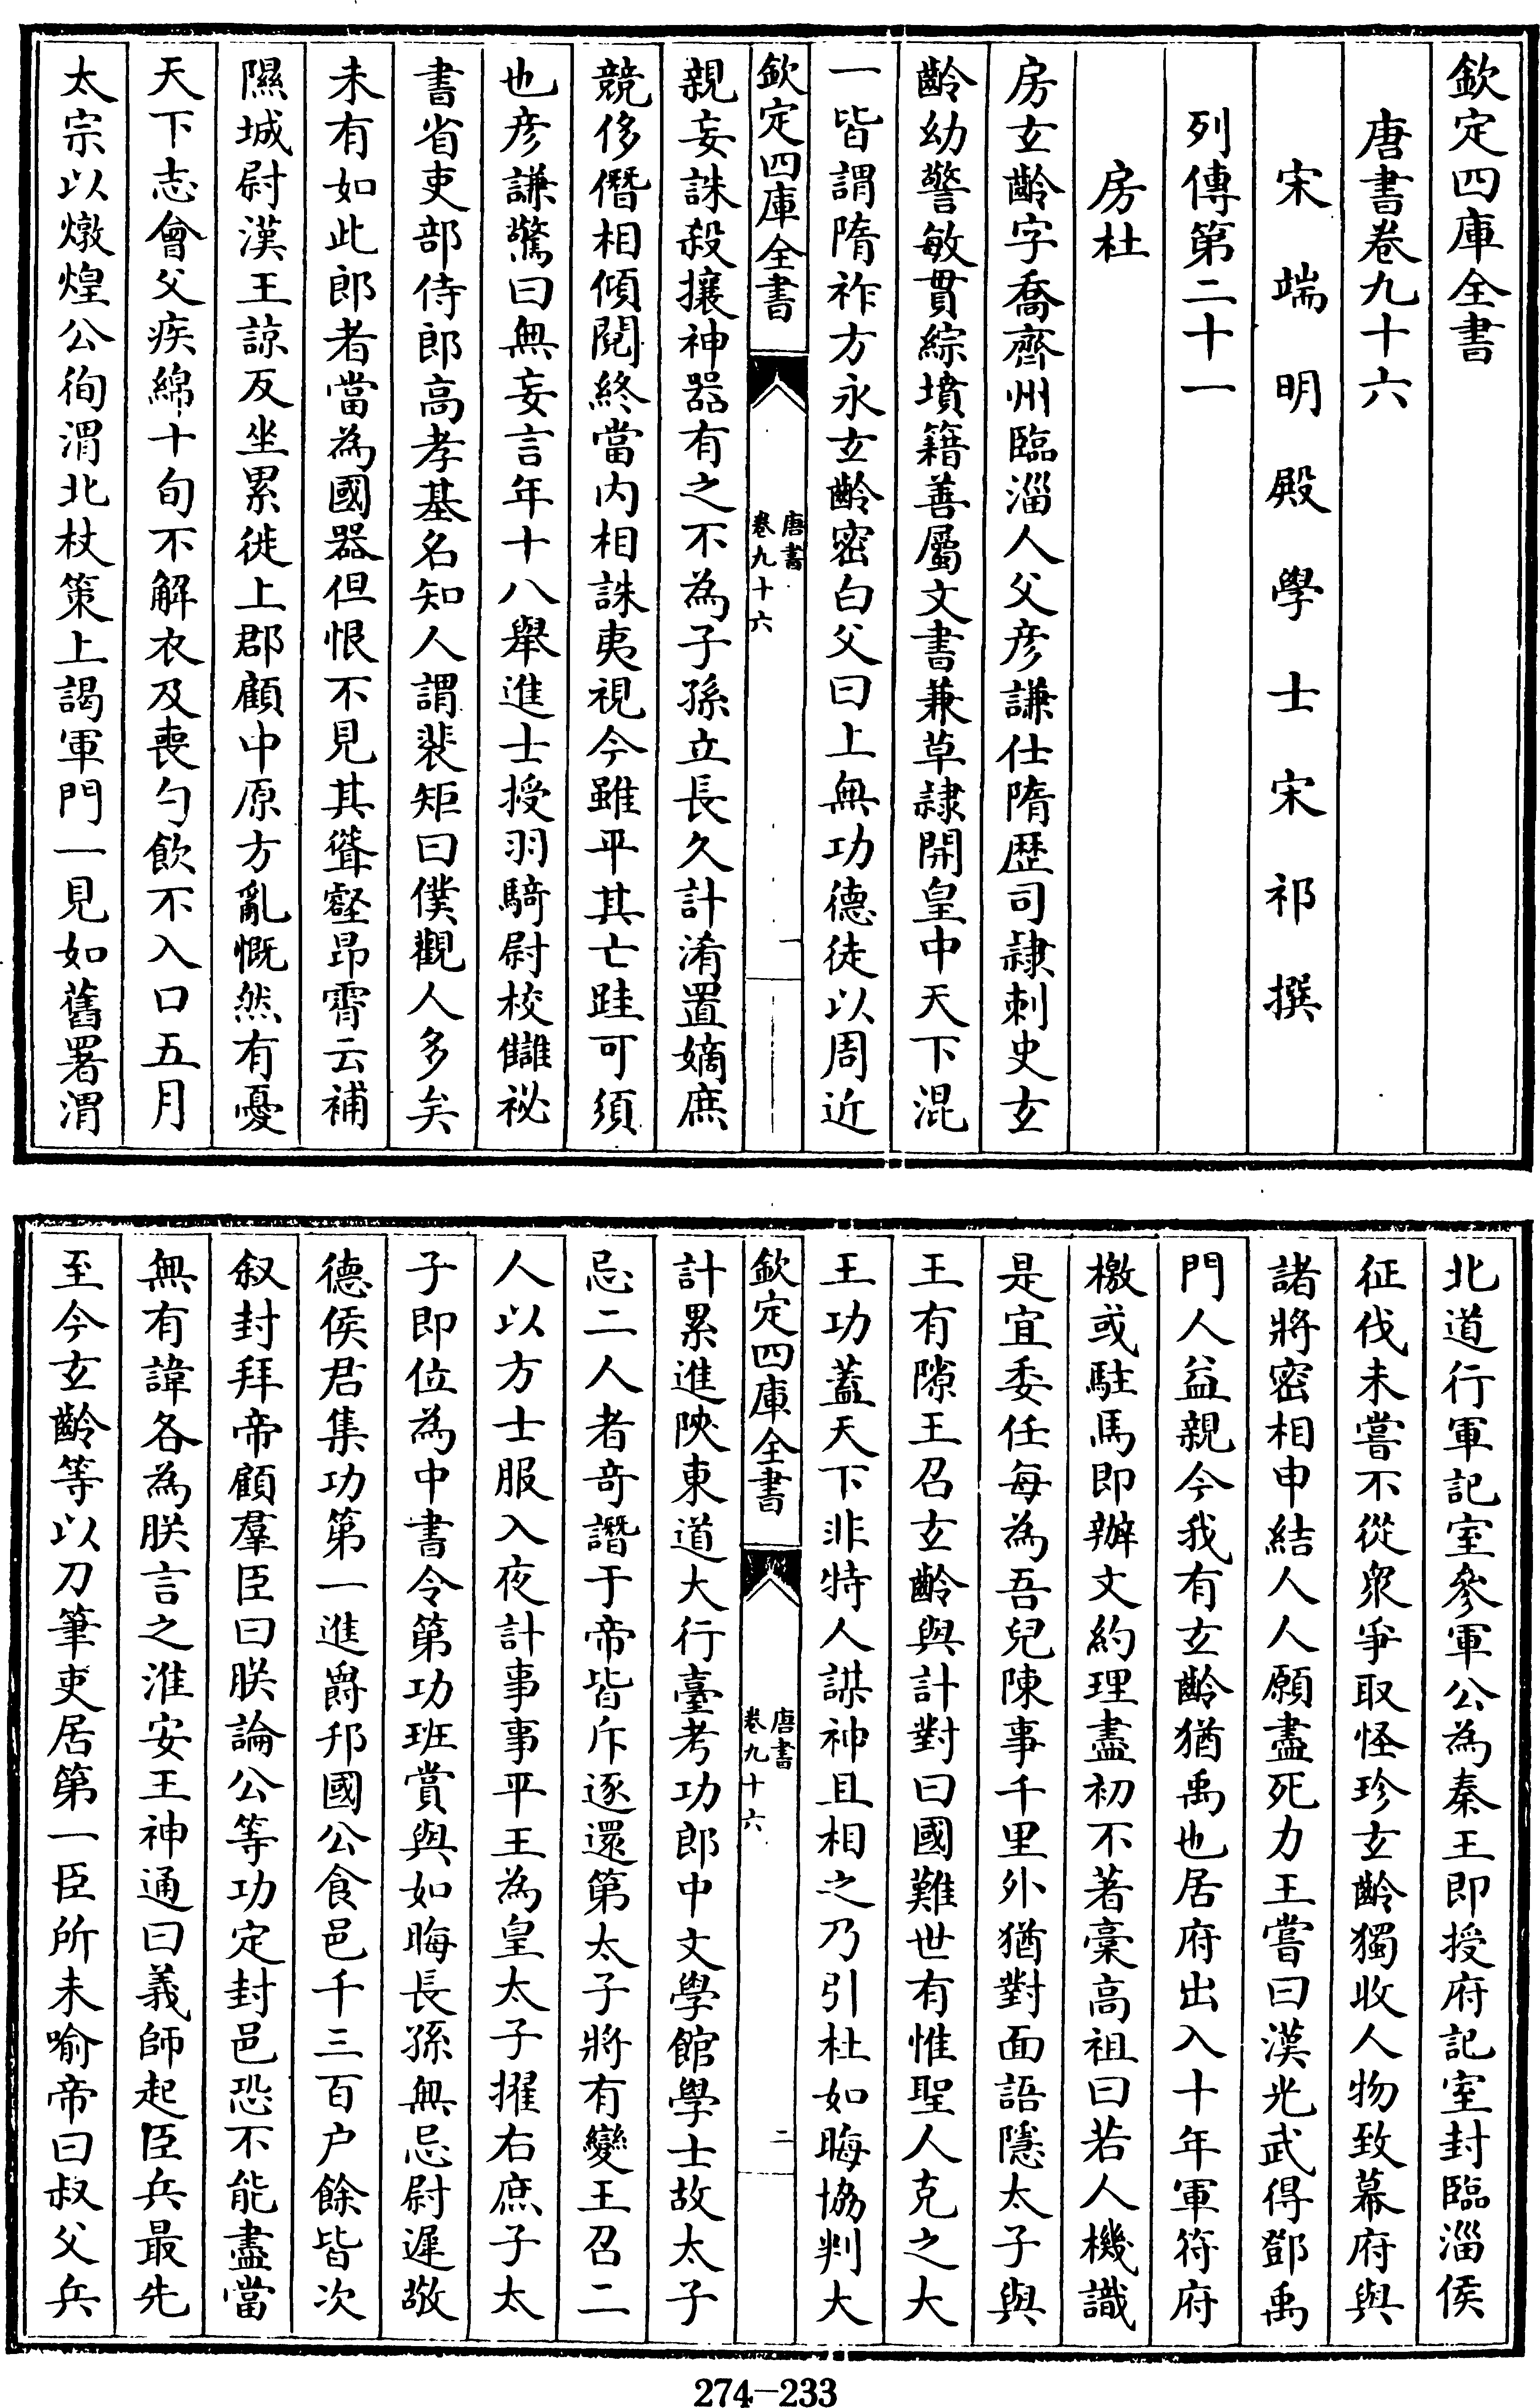 欽定四庫全書
唐書卷九十六
宋端明殿學士宋祁撰
列傳第二十一
房杜
房玄齡字喬齊州臨淄人父彦謙仕隋歴司隷刺史玄
齡幼警敏貫綜墳籍善屬文書兼草隷開皇中天下混
一皆謂隋祚方永玄齡密白父曰上無功德徒以周近
欽定四庫全書
唐書
卷九十六
一
親妄誅殺攘神器有之不為子孫立長久計淆置嫡庶
競侈僭相傾鬩終當内相誅夷視今雖平其亡跬可須
也彦謙驚曰無妄言年十八舉進士授羽騎尉校讎祕
書省吏部侍郎高孝基名知人謂裴矩曰僕觀人多矣
未有如此郎者當為國器但恨不見其聳壑昂霄云補
隰城尉漢王諒反坐累徙上郡顧中原方亂慨然有憂
天下志會父疾綿十旬不解衣及喪勺飲不入口五月
太宗以燉煌公徇渭北杖策上謁軍門一見如舊署渭
北道行軍記室參軍公為秦王即授府記室封臨淄侯
征伐未嘗不從衆爭取怪珍玄齡獨收人物致幕府與
諸將密相申結人人願盡死力王嘗曰漢光武得鄧禹
門人益親今我有玄齡猶禹也居府出入十年軍符府
檄或駐馬即辦文約理盡初不著稾高祖曰若人機識
是宜委任每為吾兒陳事千里外猶對面語隱太子與
王有隙王召玄齡與計對曰國難世有惟聖人克之大
王功蓋天下非特人謀神且相之乃引杜如晦協判大
欽定四庫全書
唐書
卷九十六
二
計累進陜東道大行臺考功郎中文學館學士故太子
忌二人者奇譖于帝皆斥逐還第太子將有變王召二
人以方士服入夜計事事平王為皇太子擢右庶子太
子即位為中書令第功班賞與如晦長孫無忌尉遲敬
德侯君集功第一進爵邗國公食邑千三百户餘皆次
叙封拜帝顧羣臣曰朕論公等功定封邑恐不能盡當
無有諱各為朕言之淮安王神通曰義師起臣兵最先
至今玄齡等以刀筆吏居第一臣所未喻帝曰叔父兵
274-233